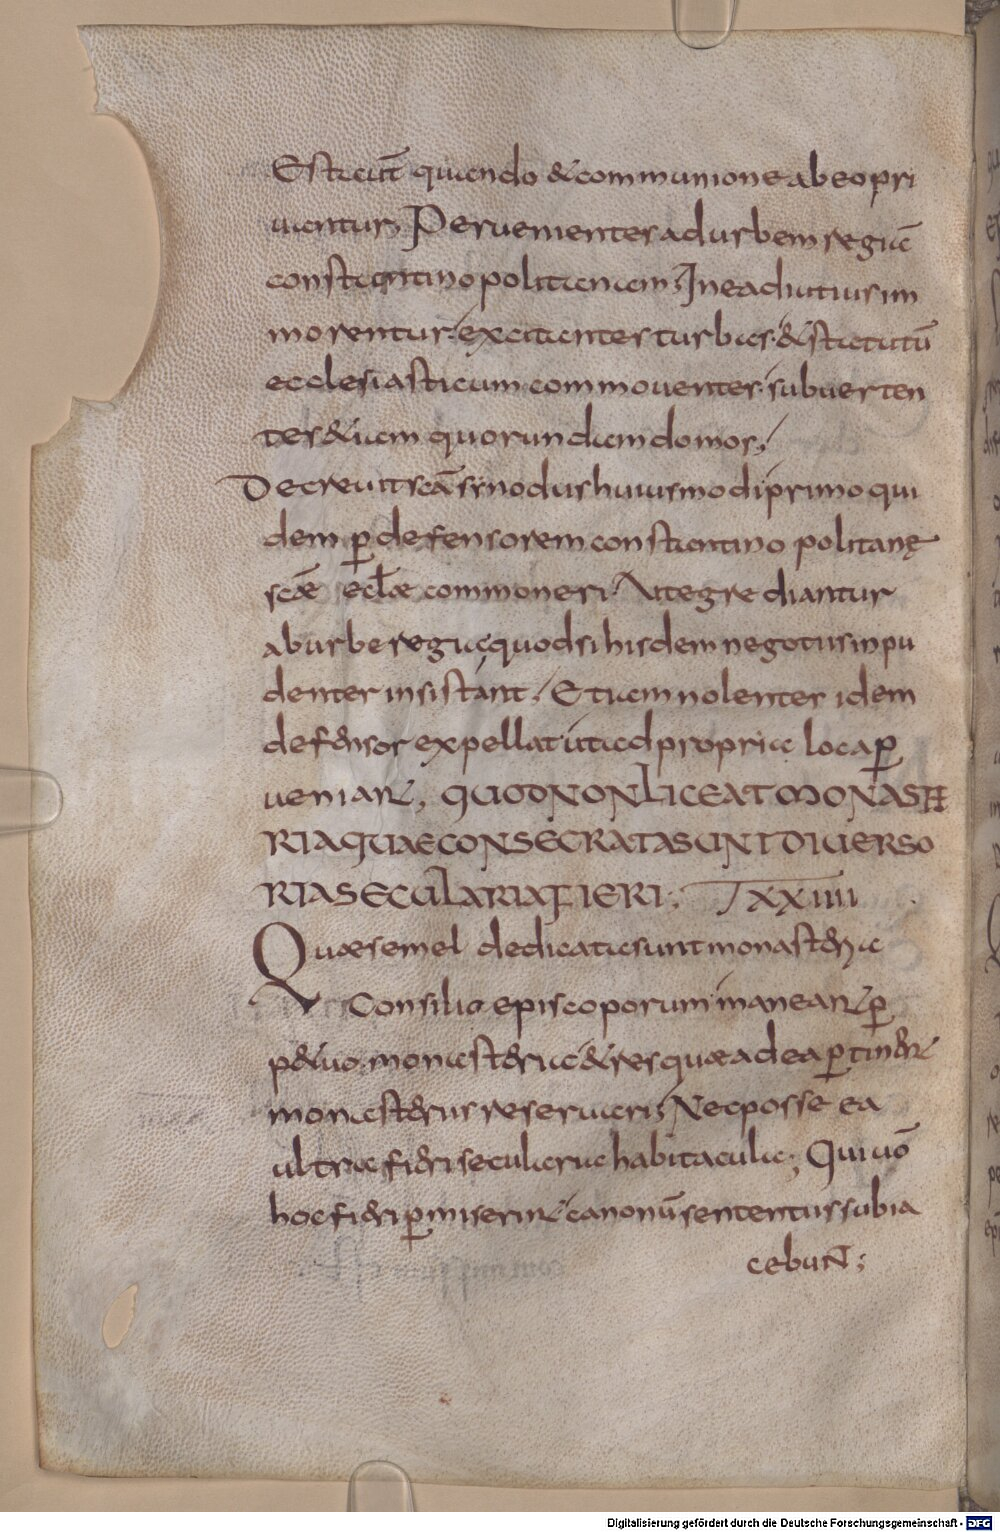 Est autē quando &communione abeopri
uantur, Peruenientes adurbem regiā
constantinopolitaniam; Ineadiutius im
morentur. excitantes turbas. &statutū
ecclesiasticum commouentes. subuerten
tes&iam quorundam domos;
Decreuit scā sinodus huiusmodi primo qui
dem ꝑ defensorem constantino politanę
scǣ eclǣ commoneri. Utegrediantur
aburbe regia, quodsi hisdem negotiis inpu
denter insistant. Etiam nolentes idem
defensor expellat utad propria loca ꝑ
ueniant, QUODNONLICEAT MONASTE
RIAQUAECONSECRATASUNT DIUERSO
RIASECULARIAFIERI: TXXIIII
Quæsemel dedicatasunt monasteria
Consilio episcoporum maneant ꝑ
p&uo. monasteria &res quæ adea ꝑtinent
monasteriis reseruari; Necposse ea
ultra fieri secularia habitacula; Quiuō
hocfieri ꝑmiserint canonū sententiis subia
cebunt;
Digitalisierung gefördert durch die Deutsche Forschungsgemeinschaft - DFG